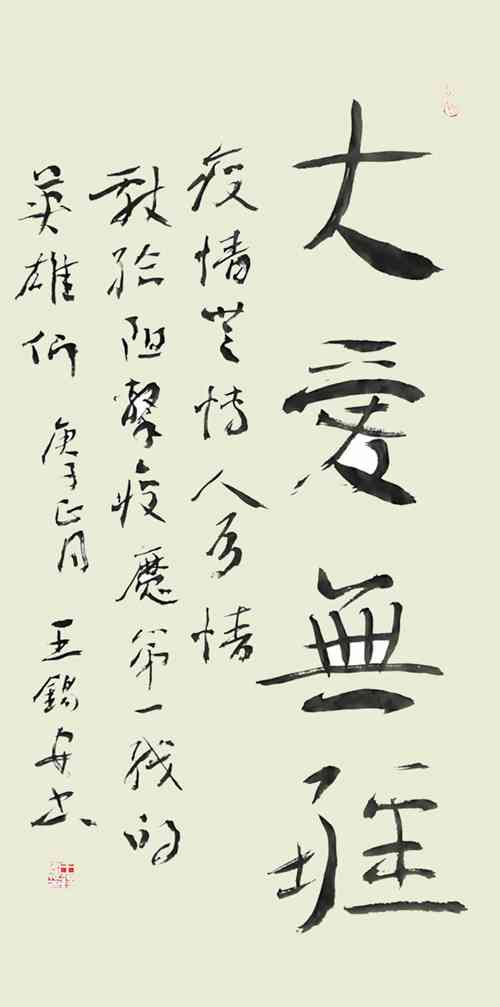 大愛無疆
疫情無情人有情
献给阻擊疫魔第一线的
英雄们 庚子正月 王錫安书